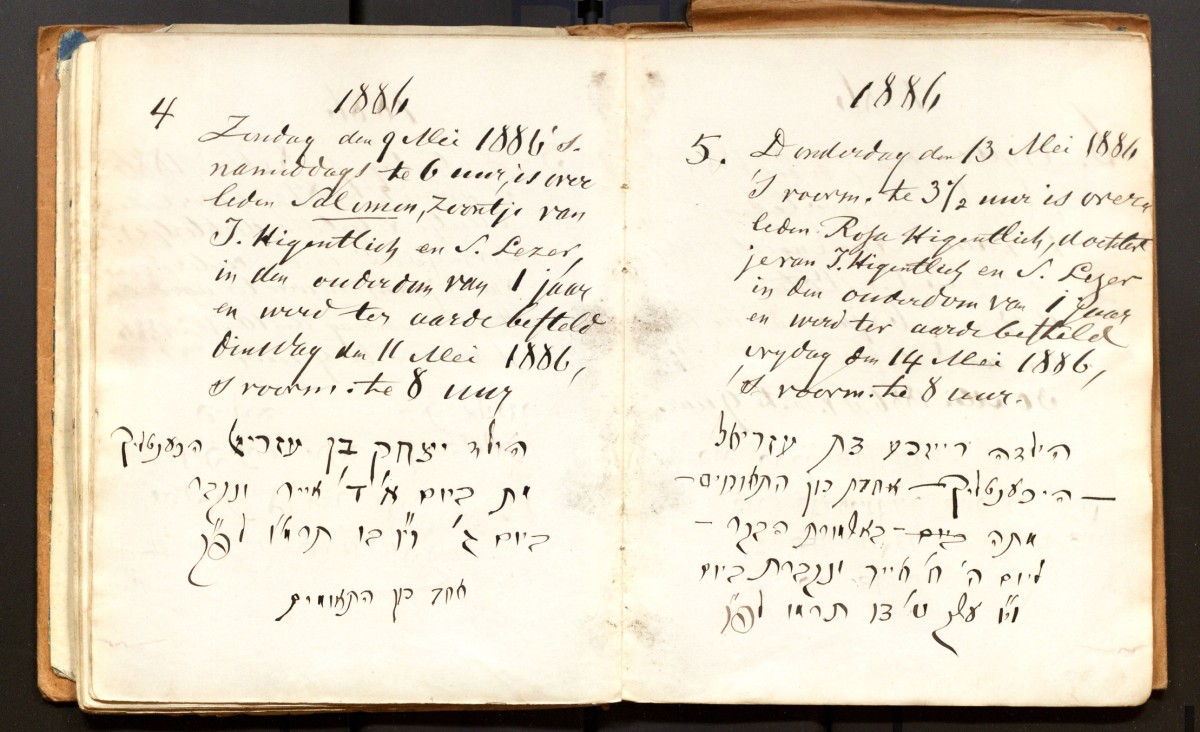 1886
4
Zondag den 9 Mei 1886 's.
namiddags te 6 uur, is over
leden Salomon, zoontje van
I. Higentlich en S. Lezer,
in den ouderdom van 1 jaar
en werd ter aarde besteld
dinsdag den 11 Mei 1886,
's voorm. te 8 uur
הילד יצחק בן עזריאל
מת ביום א' ד' אייר ונקבר
ביום ג' ו' בו תרמ"ו לפ"ק
אחד מן התאומים
1886
5. Donderdag den 13 Mei 1886
's voorm. te 3 1/2 uur is overe
leden Rosa Higentlich, dochter
je van I. Higentlich en S. Lezer
in den ouderdom van 1 Jaar
en werd ter aarde besteld
vrydag den 14 Mei 1886,
's voorm. te 8 uur.
הילדה בת עזריאל
— אחדת מן התאומים —
מתה ביום — באשמורת הבקר —
ליום ה' ח' אייר ונקברת ביום
ט' בו תרמו לפ"ק